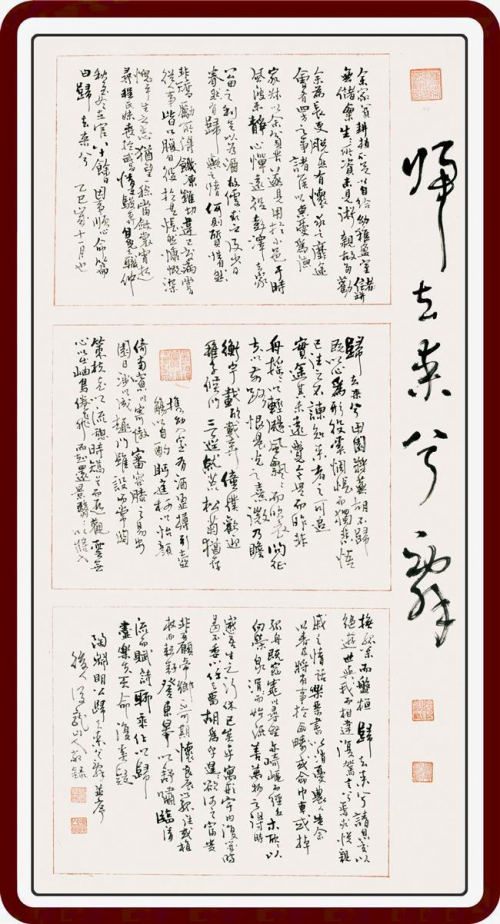 歸去來兮辭
余家貧耕植不足以自給幼稚盈室缾
無儲粟生生所資未見其術親故多勸
余為長吏脫然有懷求之靡途
會有四方之事諸侯以惠愛為德
家叔以余貧苦遂見用於小邑于時
風波未靜心憚遠役彭澤去家
百里公田之利足以為酒故便求之及少日
眷然有歸歟之情何則質性自然
非矯勵所得飢凍雖切違己交病嘗
從人事皆口腹自役於是悵然慷慨深
愧平生之志猶望一稔當斂裳宵逝
尋程氏妹喪於武昌情在駿奔自免去職仲
秋至冬在官八十餘日因事順心命篇
曰歸去來兮 乙巳歲十一月也
歸去來兮田園將蕪胡不歸
既以心為形役奚惆悵而獨悲悟
已往之不諫知來者之可追
實迷途其未遠覺今是而昨非
舟搖搖以輕颺風飄飄而吹衣問征
夫以前路恨晨光之熹微乃瞻
衡宇載欣載奔僮僕歡迎
稚子候門三徑就荒松菊猶存
攜幼入室有酒盈樽引壺
觴以自酌眄庭柯以怡顏
倚南窗以寄傲審容膝之易安
園日涉以成趣門雖設而常關
策扶老以流憩時矯首而遐觀雲無
心以出岫鳥倦飛而知還景翳翳以將入
撫孤松而盤桓歸去來兮請息交以
絕遊世與我而相違復駕言兮焉求悅親
戚之情話樂琴書以消憂農人告余
以春及將有事於西疇或命巾車或棹
孤舟既窈窕以尋壑亦崎嶇而經丘木欣欣以
向榮泉涓涓而始流善萬物之得時
感吾生之行休已矣乎寓形宇內復幾時
曷不委心任去留胡為乎遑遑欲何之富貴
非吾願帝鄉不可期懷良辰以孤往或植
杖而耘耔登東皋以舒嘯臨清
流而賦詩聊乘化以歸
盡樂夫天命復奚疑
陶淵明公歸去來兮辭並序
後人龍山人敬錄